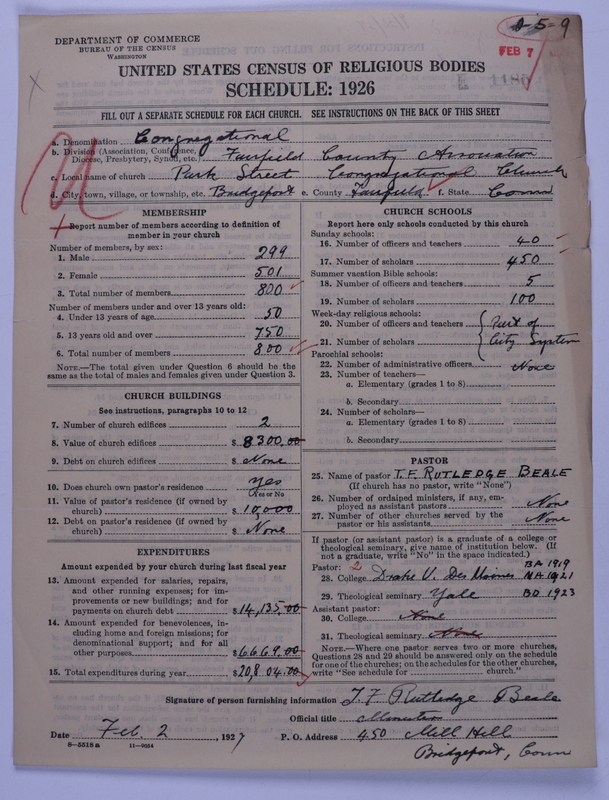 1-5-9
DEPARTMENT OF COMMERCE
BUREAU OF THE CENSUS
WASHINGTON
FEB 7
UNITED STATES CENSUS OF RELIGIOUS BODIES
SCHEDULE: 1926
FILL OUT A SEPARATE SCHEDULE FOR EACH CHURCH. SEE INSTRUCTIONS ON THE BACK OF THIS SHEET
a. Denomination Congregational
b. Division (Association, Conference, Diocese, Presbytery, Synod, etc.) Fairfield County Association
c. Local name of church Park Street Congregational Church
d. City, town, village, or township, etc. Bridgeport e. County Fairfield f. State Conn
MEMBERSHIP
Report number of members according to definition of
member in your church
Number of members, by sex:
1. Male 299
2. Female 501
3. Total number of members 800
Number of members under and over 13 years old:
4. Under 13 years of age 50
5. 13 years old and over 750
6. Total number of members 800
NOTE.—The total given under Question 6 should be the
same as the total of males and females given under Question 3.
CHURCH BUILDINGS
See instructions, paragraphs 10 to 12
7. Number of church edifices 2
8. Value of church edifices $ 8300.00
9. Debt on church edifices $ None
10. Does church own pastor's residence? Yes
Yes or No
11. Value of pastor's residence (if owned by
church) $ 10,000
12. Debt on pastor's residence (if owned by
church) $ None
EXPENDITURES
Amount expended by your church during last fiscal year
13. Amount expended for salaries, repairs,
and other running expenses; for im-
provements or new buildings; and for
payments on church debt $ 14,135.00
14. Amount expended for benevolences, in-
cluding home and foreign missions; for
denominational support; and for all
other purposes $ 6669.00
15. Total expenditures during year $ 20,804.00
CHURCH SCHOOLS
Report here only schools conducted by this church
Sunday schools:
16. Number of officers and teachers 40
17. Number of scholars 450
Summer vacation Bible schools:
18. Number of officers and teachers 5
19. Number of scholars 100
Week-day religious schools:
20. Number of officers and teachers Part of
21. Number of scholars City System
Parochial schools:
22. Number of administrative officers None
23. Number of teachers—
a. Elementary (grades 1 to 8)
b. Secondary
24. Number of scholars—
a. Elementary (grades 1 to 8)
b. Secondary
PASTOR
25. Name of pastor T. F. RUTLEDGE BEALE
(If church has no pastor, write "None")
26. Number of ordained ministers, if any, em-
ployed as assistant pastors None
27. Number of other churches served by the
pastor or his assistants None
If pastor (or assistant pastor) is a graduate of a college or
theological seminary, give name of institution below. (If
not a graduate, write "No" in the space indicated.)
Pastor: 2 BA 1919
28. College Drake U. Des Moines MA 1921
29. Theological seminary Yale BD 1923
Assistant pastor:
30. College None
31. Theological seminary None
NOTE.—Where one pastor serves two or more churches,
Questions 28 and 29 should be answered only on the schedule
for one of the churches; on the schedules for the other churches,
write "See schedule for church."
Signature of person furnishing information T. F. Rutledge Beale
Official title Minister
Date Feb. 2, 1927 P. O. Address 450 Mill Hill
8-5518 a 11-9054
Bridgeport, Conn